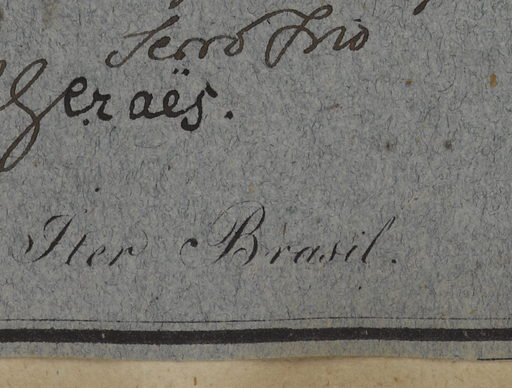 Serro Frio
Geraës.
Iter Brasil.